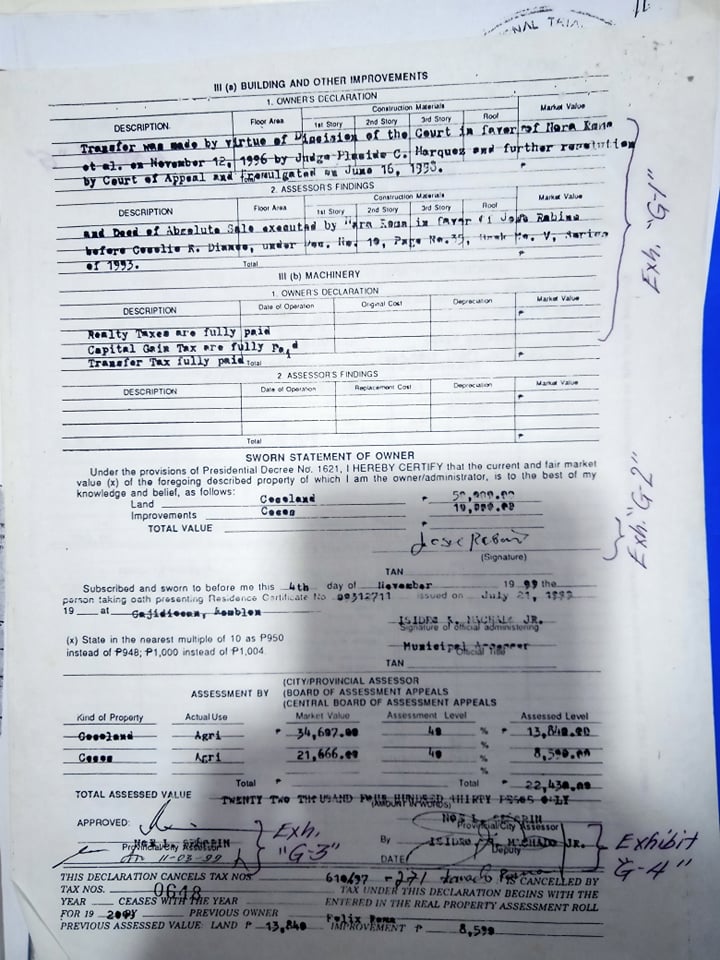 III (a) BUILDING AND OTHER IMPROVEMENTS
1. OWNER'S DECLARATION
DESCRIPTION Floor Area Construction Materials Market Value
1st Story 2nd Story 3rd Story Roof
Transfer was made by virtue of of the Court in favor of Nora Roma
et al. on November 12, 1996 by Judge Placido C. Marquez and further
by Court of Appeal and on June 16, 1993. ₱
2. ASSESSOR'S FINDINGS
DESCRIPTION Floor Area Construction Materials Market Value
1st Story 2nd Story 3rd Story Roof
and Deed of Absolute Sale executed by Nora Roma in favor of Jose Rabino
before R. under Doc. No. 10, Page No. 35, Book No. V, Series
of 1993. Total ₱
Exh. "G-1"
III (b) MACHINERY
1. OWNER'S DECLARATION
DESCRIPTION Date of Operation Original Cost Depreciation Market Value
₱
Realty Taxes are fully paid
Capital Gain Tax are fully Paid
Transfer Tax fully paid Total ₱
2 ASSESSOR'S FINDINGS
DESCRIPTION Date of Operation Replacement Cost Depreciation Market Value
₱
Total ₱
SWORN STATEMENT OF OWNER
Under the provisions of Presidential Decree No. 1621, I HEREBY CERTIFY that the current and fair market
value (x) of the foregoing described property of which I am the owner/administrator, is to the best of my
knowledge and belief, as follows:
Land Cocoland ₱ 50,000.00
Improvements Cocos 10,000.00
TOTAL VALUE ₱
Exh. "G-2"
Jose Rabino
(Signature)
TAN
Subscribed and sworn to before me this 4th day of November 19 99 the
person taking oath presenting Residence Certificate No 00312711 issued on July 21, 1999
19 at Cajidiocan, Romblon
ISIDRO R. MACHADO JR.
Signature of official administering
(x) State in the nearest multiple of 10 as ₱950
instead of ₱948; ₱1,000 instead of ₱1,004.
Municipal Assessor
Official Title
TAN
ASSESSMENT BY (CITY/PROVINCIAL ASSESSOR
(BOARD OF ASSESSMENT APPEALS
(CENTRAL BOARD OF ASSESSMENT APPEALS
Kind of Property Actual Use Market Value Assessment Level Assessed Level
Cocoland Agri ₱ 34,607.00 40 % ₱ 13,840.00
Cocos Agri 21,666.00 40 % 8,590.00
%
Total ₱ Total ₱ 22,430.00
TOTAL ASSESSED VALUE TWENTY TWO THOUSAND FOUR HUNDRED THIRTY PESOS ONLY
(AMOUNT IN WORDS)
APPROVED:
Provincial/City Assessor
By ISIDRO R. MACHADO JR.
Deputy
Provincial/City Assessor
on 11-03-99
DATE
Exh. "G-3"
Exhibit "G-4"
THIS DECLARATION CANCELS TAX NOS. IS CANCELLED BY
TAX NOS. 0648 TAX UNDER THIS DECLARATION BEGINS WITH THE
YEAR CEASES WITH THE YEAR ENTERED IN THE REAL PROPERTY ASSESSMENT ROLL
FOR 19 PREVIOUS OWNER Felix Roma
PREVIOUS ASSESSED VALUE: LAND ₱ 13,840 IMPROVEMENT ₱ 8,590